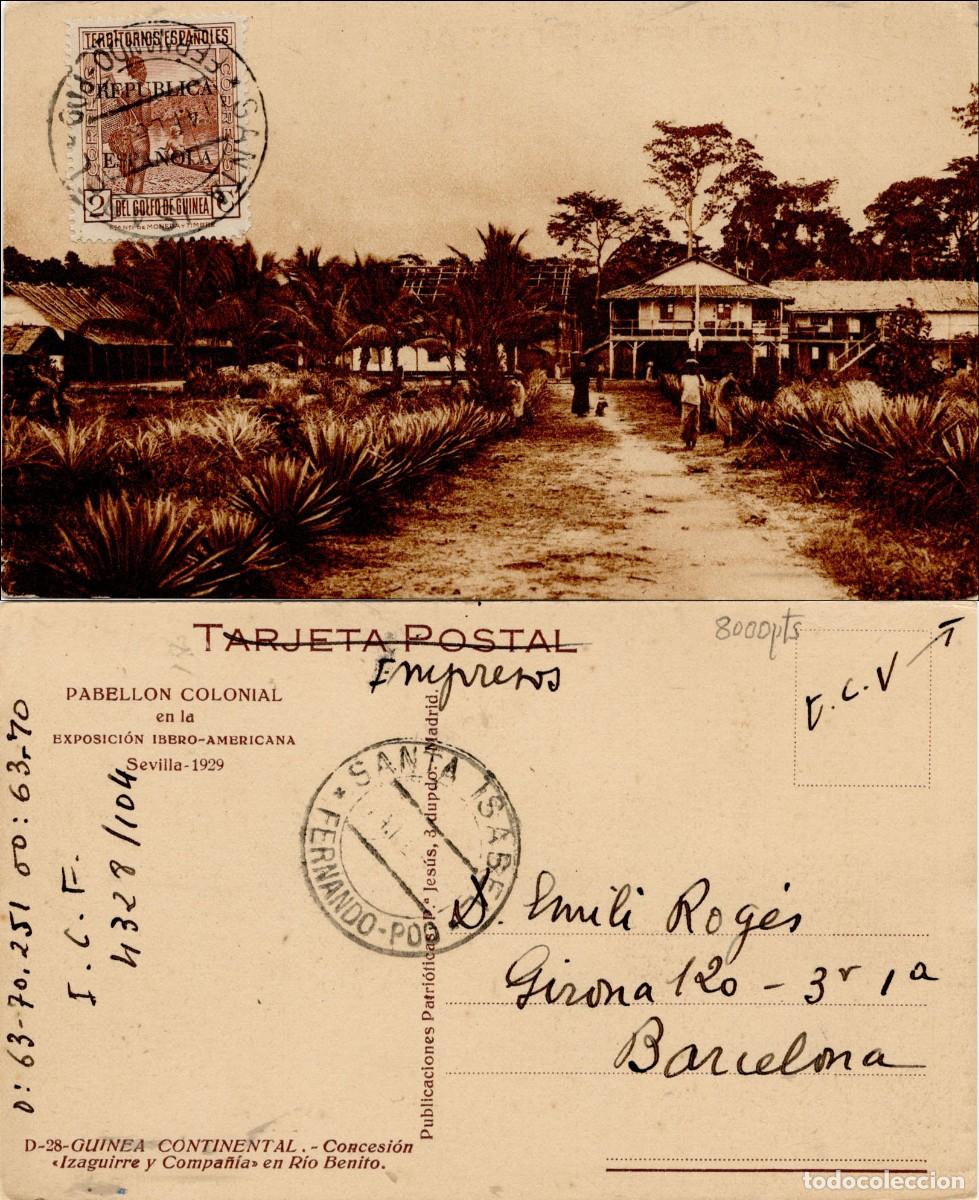 TERRITORIOS ESPAÑOLES
CORREOS
CORREOS
REPUBLICA
ESPAÑOLA
2
DEL GOLFO DE GUINEA
SANTA
FERNANDO-POO
TARJETA POSTAL
Impresos
8000pts
PABELLON COLONIAL
en la
EXPOSICIÓN IBERO-AMERICANA
Sevilla-1929
T
E.C.V
SANTA ISABEL
FERNANDO-POO
D: 63-70.251 00: 63-70
I.C.F.
4328/104
Publicaciones Patrióticas, Jesús, 3 dupdo. Madrid.
D. Emili Rogés
Girona 120 - 3r 1ª
Barcelona
D-28-GUINEA CONTINENTAL.-Concesión
«Izaguirre y Compañía» en Río Benito.
todocoleccion